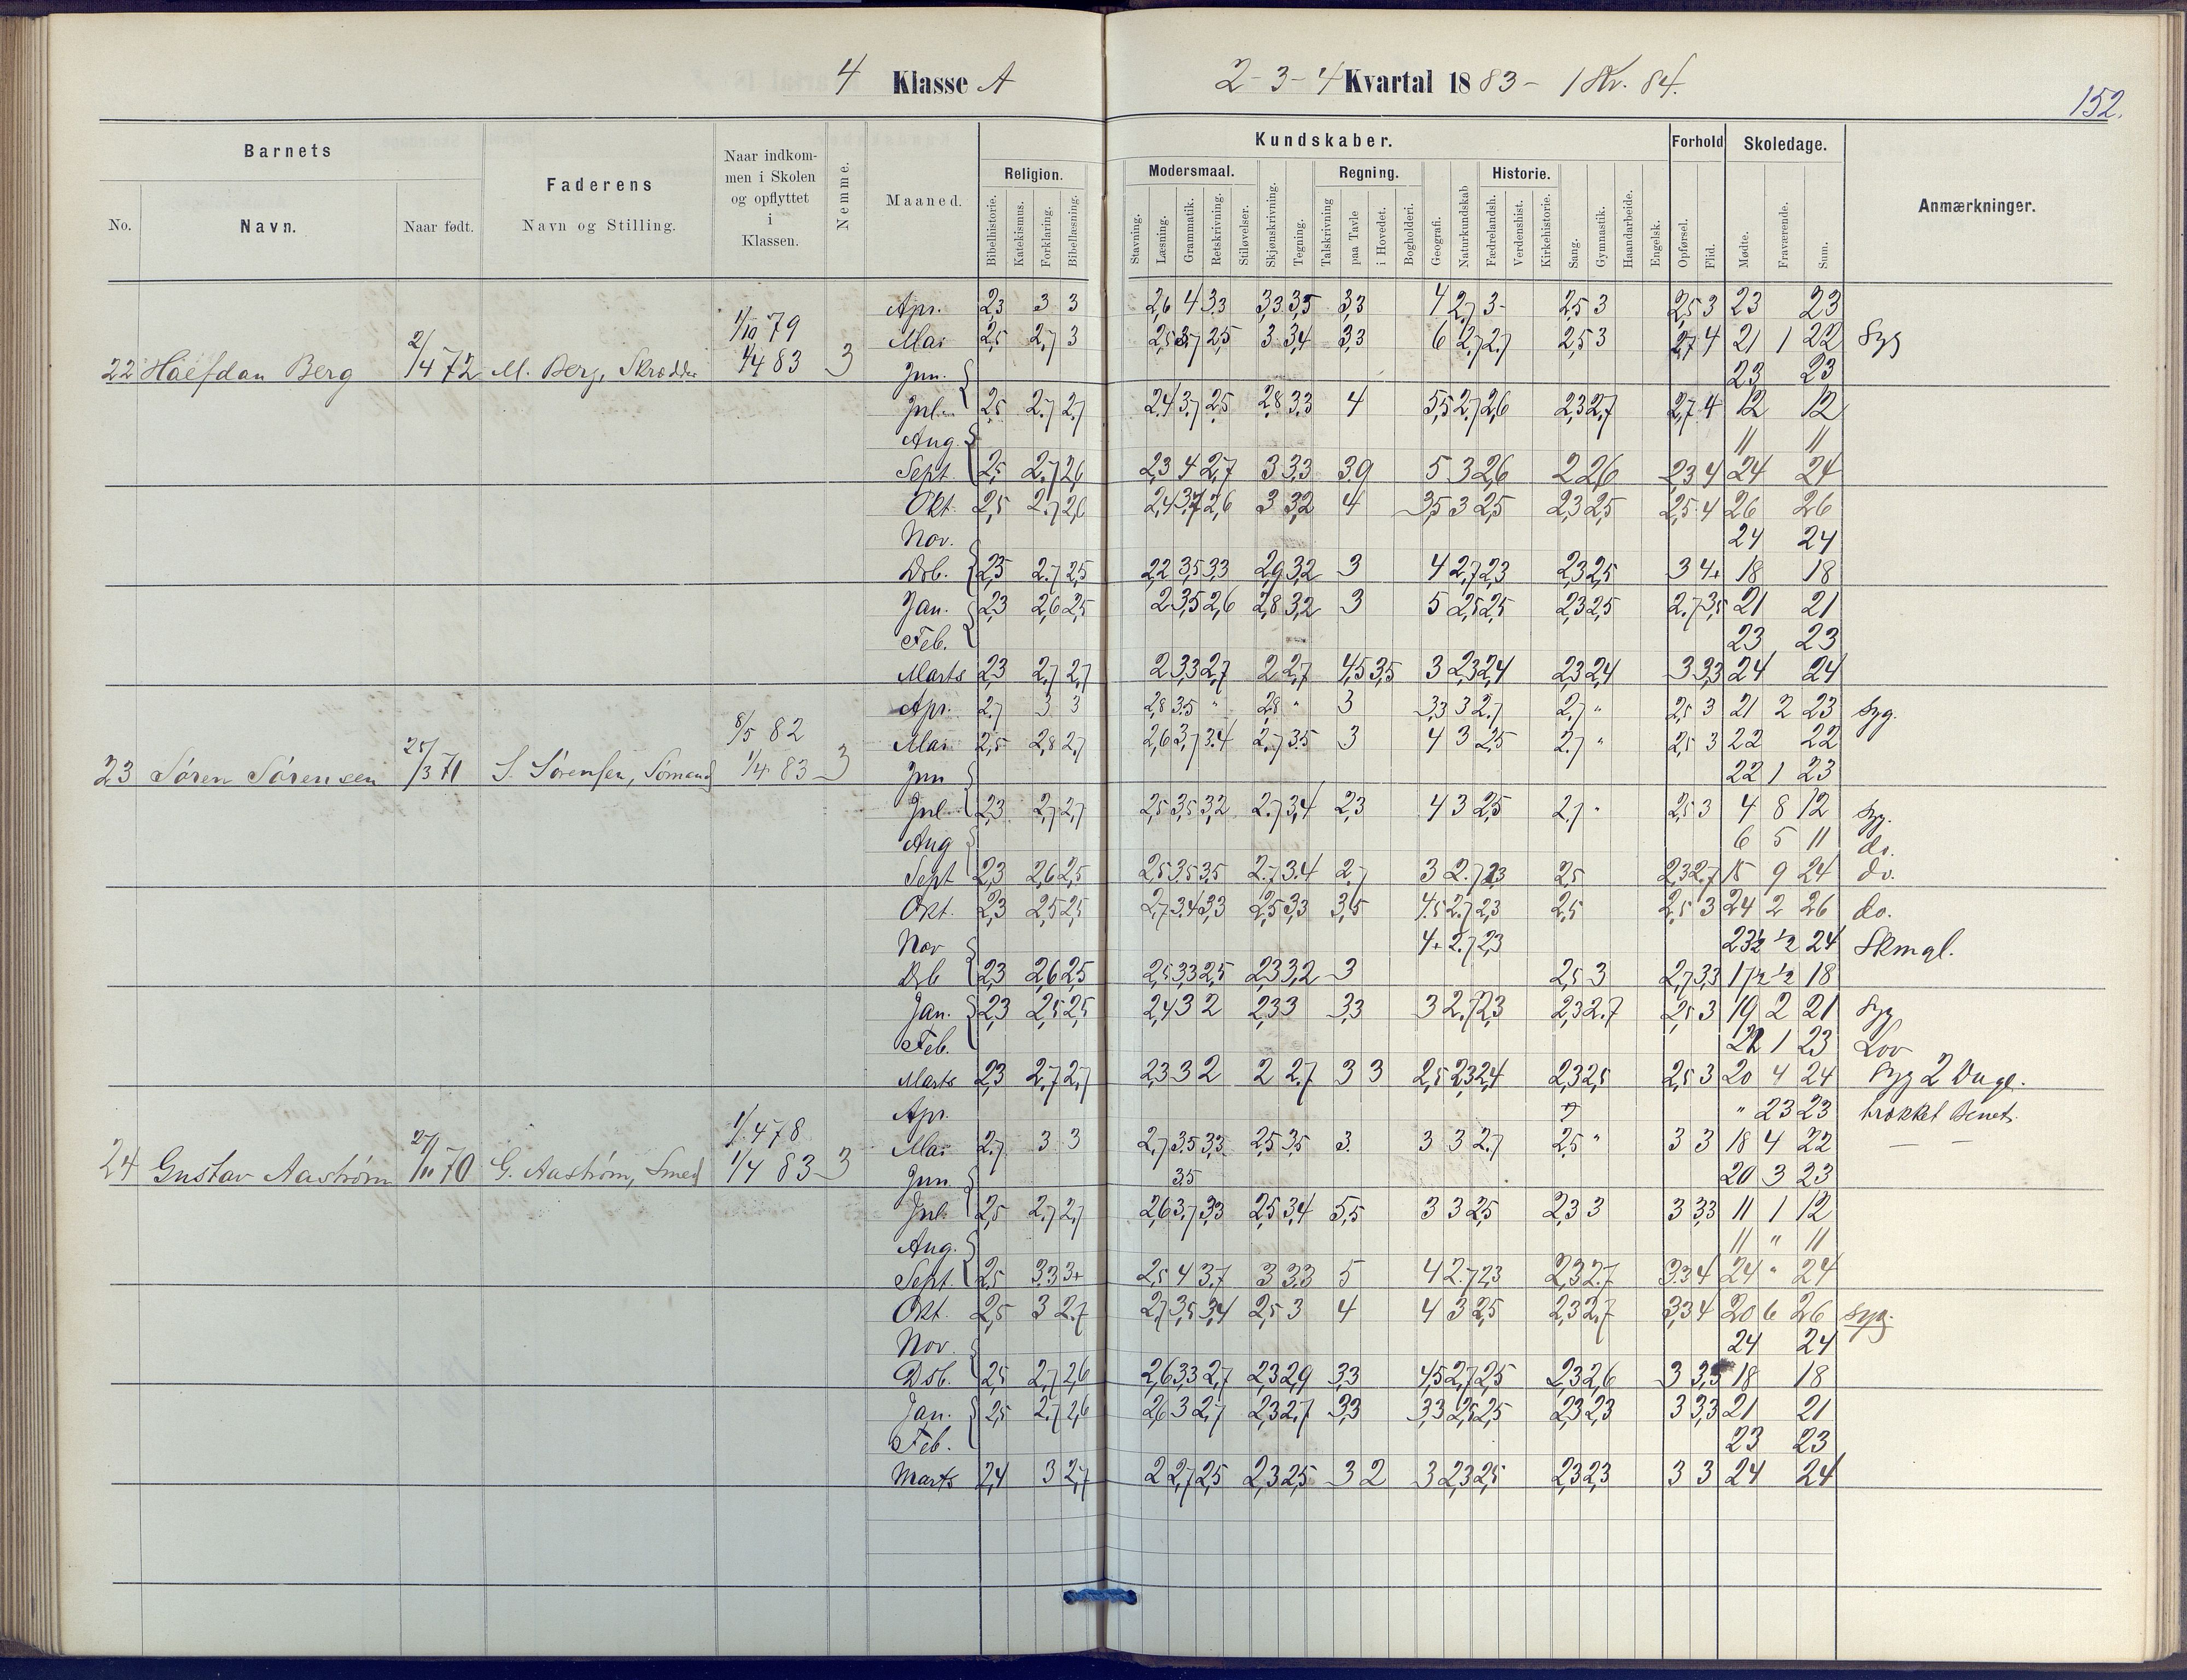 4 Klasse A 2-3-4 Kvartal 1883- 1 Kv. 84.
152.
Barnets
No.
Navn.
Naar født.
Faderens
Navn og Stilling.
Naar indkom-
men i Skolen
og opflyttet
i
Klassen.
Nemme.
Maaned.
Kundskaber.
Religion.
Bibelhistorie.
Katekismus.
Forklaring.
Bibellæsning.
Modersmaal.
Stavning.
Læsning.
Grammatik.
Retskrivning.
Stiløvelser.
Skjønskrivning.
Tegning.
Regning.
Talskrivning
paa Tavle
i Hovedet.
Bogholderi.
Geografi.
Naturkundskab
Historie.
Fædrelandsh.
Verdenshist.
Kirkehistorie.
Sang.
Gymnastik.
Haandarbeide.
Engelsk.
Forhold
Opførsel.
Flid.
Skoledage.
Mødte.
Fraværende.
Sum.
Anmærkninger.
22 Halfdan Berg 2/4 72 M. Berg, Skrædder 1/10 79 1/4 83 3
Apr. 2,3 3 3 2,6 4 3,3 3,3 3,5 3,3 4 2,7 3- 2,5 3 2,5 3 23 23
Mai 2,5 2,7 3 2,5 3,7 2,5 3 3,4 3,3 6 2,7 2,7 2,5 3 2,7 4 21 1 22 Syg
Jun. 23 23
Jul. 2,5 2,7 2,7 2,4 3,7 2,5 2,8 3,3 4 5,5 2,7 2,6 2,3 2,7 2,7 4 12 12
Aug. 11 11
Sept. 2,5 2,7 2,6 2,3 4 2,7 3 3,3 3,9 5 3 2,6 2 2,6 2,3 4 24 24
Okt. 2,5 2,7 2,6 2,4 3,7 2,6 3 3,2 4 3,5 3 2,5 2,3 2,5 2,5 4 26 26
Nov. 24 24
Dsb. 2,5 2,7 2,5 2,2 3,5 3,3 2,9 3,2 3 4 2,7 2,3 2,3 2,5 3 4+ 18 18
Jan. 2,3 2,6 2,5 2 3,5 2,6 2,8 3,2 3 5 2,5 2,5 2,3 2,5 2,7 3,5 21 21
Feb. 23 23
Marts 2,3 2,7 2,7 2 3,3 2,7 2 2,7 4,5 3,5 3 2,3 2,4 2,3 2,4 3 3,3 24 24
23 Søren Sørensen 25/3 71 S. Sørensen, Sømand 8/5 82 1/4 83 3
Apr. 2,7 3 3 2,8 3,5 " 2,8 " 3 3,3 3 2,7 2,7 " 2,5 3 21 2 23 Syg.
Mai 2,5 2,8 2,7 2,6 3,7 3,4 2,7 3,5 3 4 3 2,5 2,7 " 2,5 3 22 22
Jun 22 1 23
Jul. 2,3 2,7 2,7 2,5 3,5 3,2 2,7 3,4 2,3 4 3 2,5 2,7 " 2,5 3 4 8 12 Syg.
Aug 6 5 11 do.
Sept 2,3 2,6 2,5 2,5 3,5 3,5 2,7 3,4 2,7 3 2,7 2,3 2,5 2,3 2,7 15 9 24 do.
Okt. 2,3 2,5 2,5 2,7 3,4 3,3 2,5 3,3 3,5 4,5 2,7 2,3 2,5 2,5 3 24 2 26 do.
Nov 4+ 2,7 2,3 23½ ½ 24 Skmgl.
Dsb 2,3 2,6 2,5 2,5 3,3 2,5 2,3 3,2 3 2,5 3 2,7 3,3 17½ ½ 18
Jan. 2,3 2,5 2,5 2,4 3 2 2,3 3 3,3 3 2,7 2,3 2,3 2,7 2,5 3 19 2 21 Syg
Feb. 22 1 23 Lov
Marts 2,3 2,7 2,7 2,3 3 2 2 2,7 3 3 2,5 2,3 2,4 2,3 2,5 2,5 3 20 4 24 Syg 2 Dage.
24 Gustav Aastrøm 27/11 70 G. Aastrøm, Smed 1/4 78 1/4 83 3
Apr. " 23 23 brækket Benet.
Mai 2,7 3 3 2,7 3,5 3,3 2,5 3,5 3 3 3 2,7 2,5 " 3 3 18 4 22 — —
Jun 3,5 20 3 23
Jul. 2,5 2,7 2,7 2,6 3,7 3,3 2,5 3,4 5,5 3 3 2,5 2,3 3 3 3,3 11 1 12
Aug. 11 " 11
Sept. 2,5 3,3 3+ 2,5 4 3,7 3 3,3 5 4 2,7 2,3 2,3 2,7 3,3 4 24 " 24
Okt. 2,5 3 2,7 2,7 3,5 3,4 2,5 3 4 4 3 2,5 2,3 2,7 3,3 4 20 6 26 Syg.
Nov. 24 24
Dsb. 2,5 2,7 2,6 2,6 3,3 2,7 2,3 2,9 3,3 4,5 2,7 2,5 2,3 2,6 3 3,5 18 18
Jan. 2,5 2,7 2,6 2,6 3 2,7 2,3 2,7 3,3 3,3 2,5 2,5 2,3 2,3 3 3,3 21 21
Feb. 23 23
Marts 2,4 3 2,7 2 2,7 2,5 2,3 2,5 3 2 3 2,3 2,5 2,3 2,3 3 3 24 24